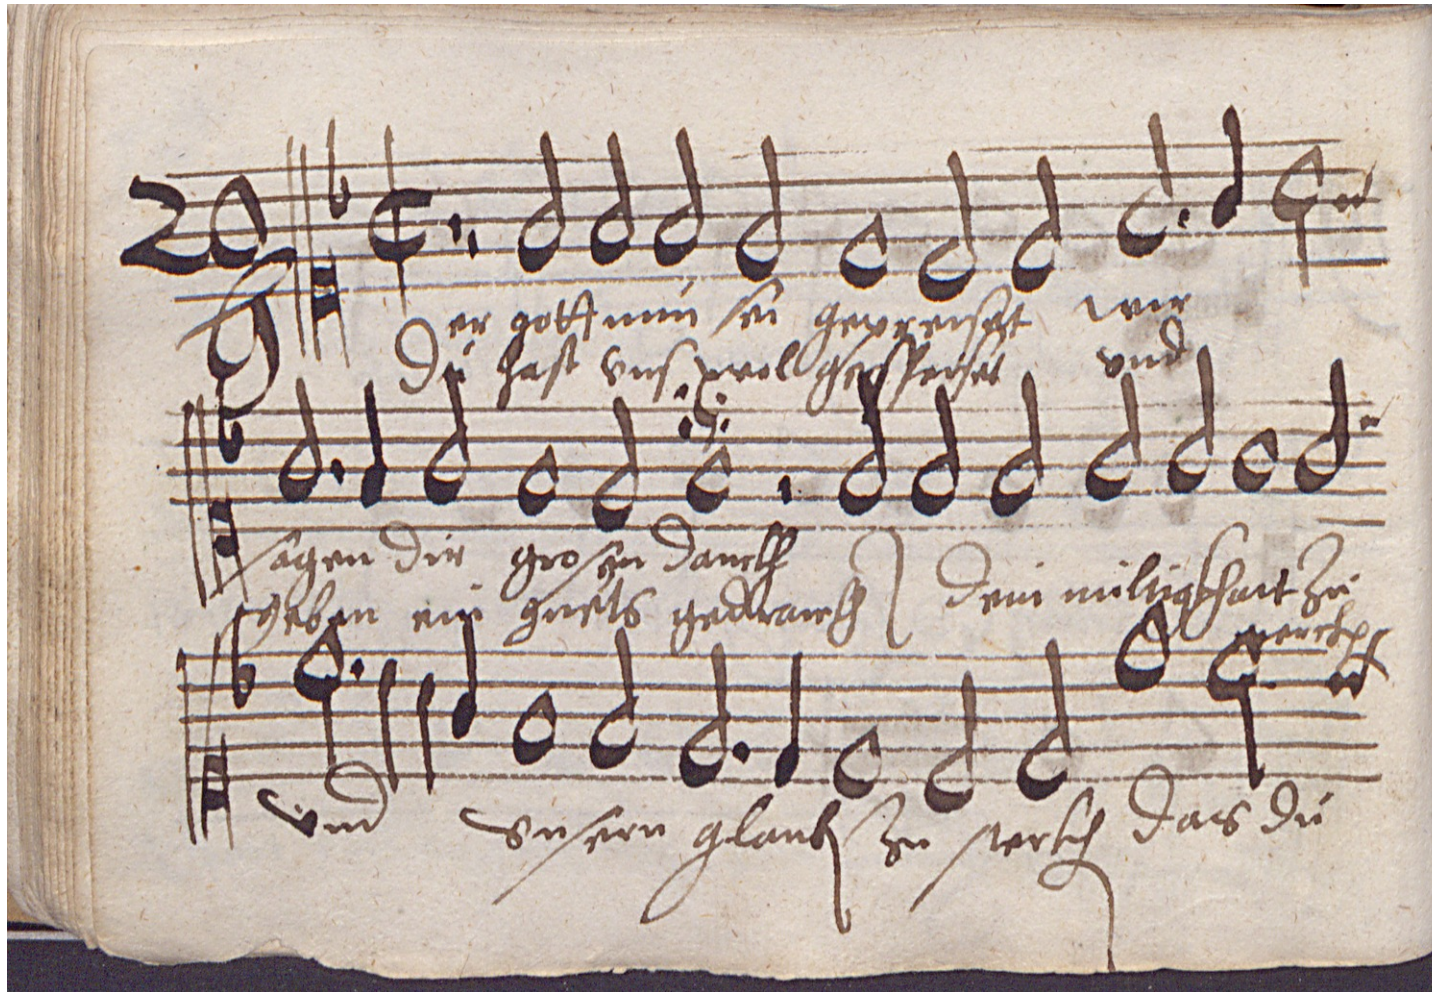 20
er gott nun sei gepreiset wir
Du hast vns woll gespeiset vnd
sagen dir grosen danckh
geben ein guets gedranckh Dein miltigkhait zu
merckhen
vnd vnsern glaub zu sterckh das du